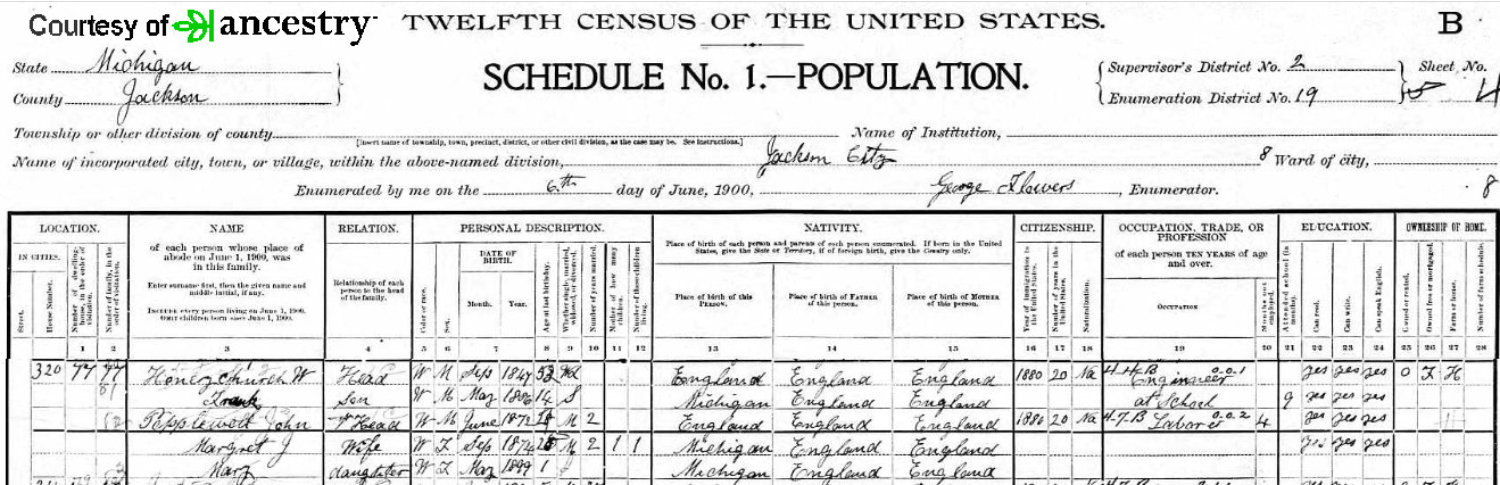 Courtesy of ancestry
TWELFTH CENSUS OF THE UNITED STATES.
B
State Michigan
County Jackson
SCHEDULE No. 1.—POPULATION.
Supervisor's District No. 2
Enumeration District No. 19
Sheet No.
4
Township or other division of county
[Insert name of township, town, precinct, district, or other civil division, as the case may be. See instructions.]
Name of Institution,
Name of incorporated city, town, or village, within the above-named division, Jackson City
8 Ward of city,
Enumerated by me on the 6th day of June, 1900, George Flowers, Enumerator.
8
LOCATION.
IN CITIES.
Street.
House Number.
Number of dwelling-house, in the order of visitation.
Number of family, in the order of visitation.
NAME
of each person whose place of
abode on June 1, 1900, was
in this family.
Enter surname first, then the given name and
middle initial, if any.
INCLUDE every person living on June 1, 1900.
OMIT children born since June 1, 1900.
RELATION.
Relationship of each
person to the head
of the family.
PERSONAL DESCRIPTION.
Color or race.
Sex.
DATE OF
BIRTH.
Month.
Year.
Age at last birthday.
Whether single, married, widowed, or divorced.
Number of years married.
Mother of how many children.
Number of these children living.
NATIVITY.
Place of birth of each person and parents of each person enumerated. If born in the United
States, give the State or Territory; if of foreign birth, give the Country only.
Place of birth of this
PERSON.
Place of birth of FATHER
of this person.
Place of birth of MOTHER
of this person.
CITIZENSHIP.
Year of immigration to the United States.
Number of years in the United States.
Naturalization.
OCCUPATION, TRADE, OR
PROFESSION
of each person TEN YEARS of age
and over.
OCCUPATION
Months not employed.
EDUCATION.
Attended school (in months).
Can read.
Can write.
Can speak English.
OWNERSHIP OF HOME.
Owned or rented.
Owned free or mortgaged.
Farm or house.
Number of farm schedule.
1 2 3 4 5 6 7 8 9 10 11 12 13 14 15 16 17 18 19 20 21 22 23 24 25 26 27 28
320 77 Honeychurch W Head W M Sep 1847 Wd England England England 1880 20 Na 44B Engineer 0.0.1 yes yes yes O F H
Frank Son W M May 1886 14 S Michigan England England at School 9 yes yes yes
Popplewell John Head W M June 1872 M 2 England England England 1880 20 Na 47B Laborer 0.0.2 4 yes yes yes
Margret J Wife W F Sep 1874 25 M 2 1 1 Michigan England England yes yes yes
Mary daughter W F May 1899 1 Michigan England England